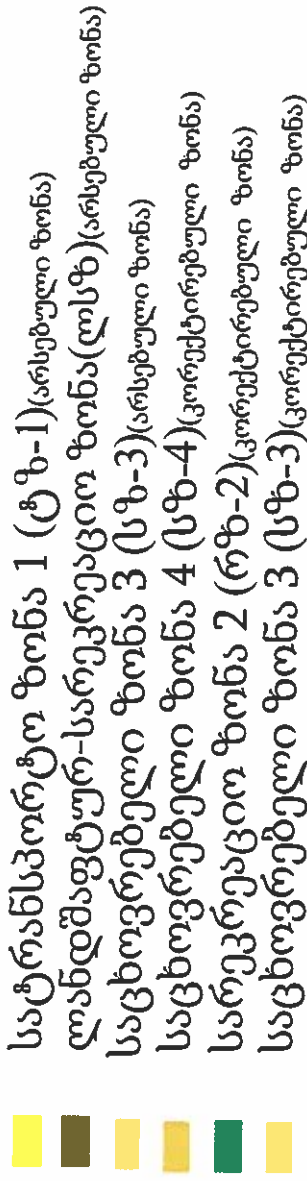 სატრანსპორტო ზონა 1 (ტზ-1)(არსებული ზონა)
ლანდშაფტურ-სარეკრეაციო ზონა(ლსზ)(არსებული ზონა)
საცხოვრებელი ზონა 3 (სზ-3)(არსებული ზონა)
საცხოვრებელი ზონა 4 (სზ-4)(კორექტირებული ზონა)
სარეკრეაციო ზონა 2 (რზ-2)(კორექტირებული ზონა)
საცხოვრებელი ზონა 3 (სზ-3)(კორექტირებული ზონა)